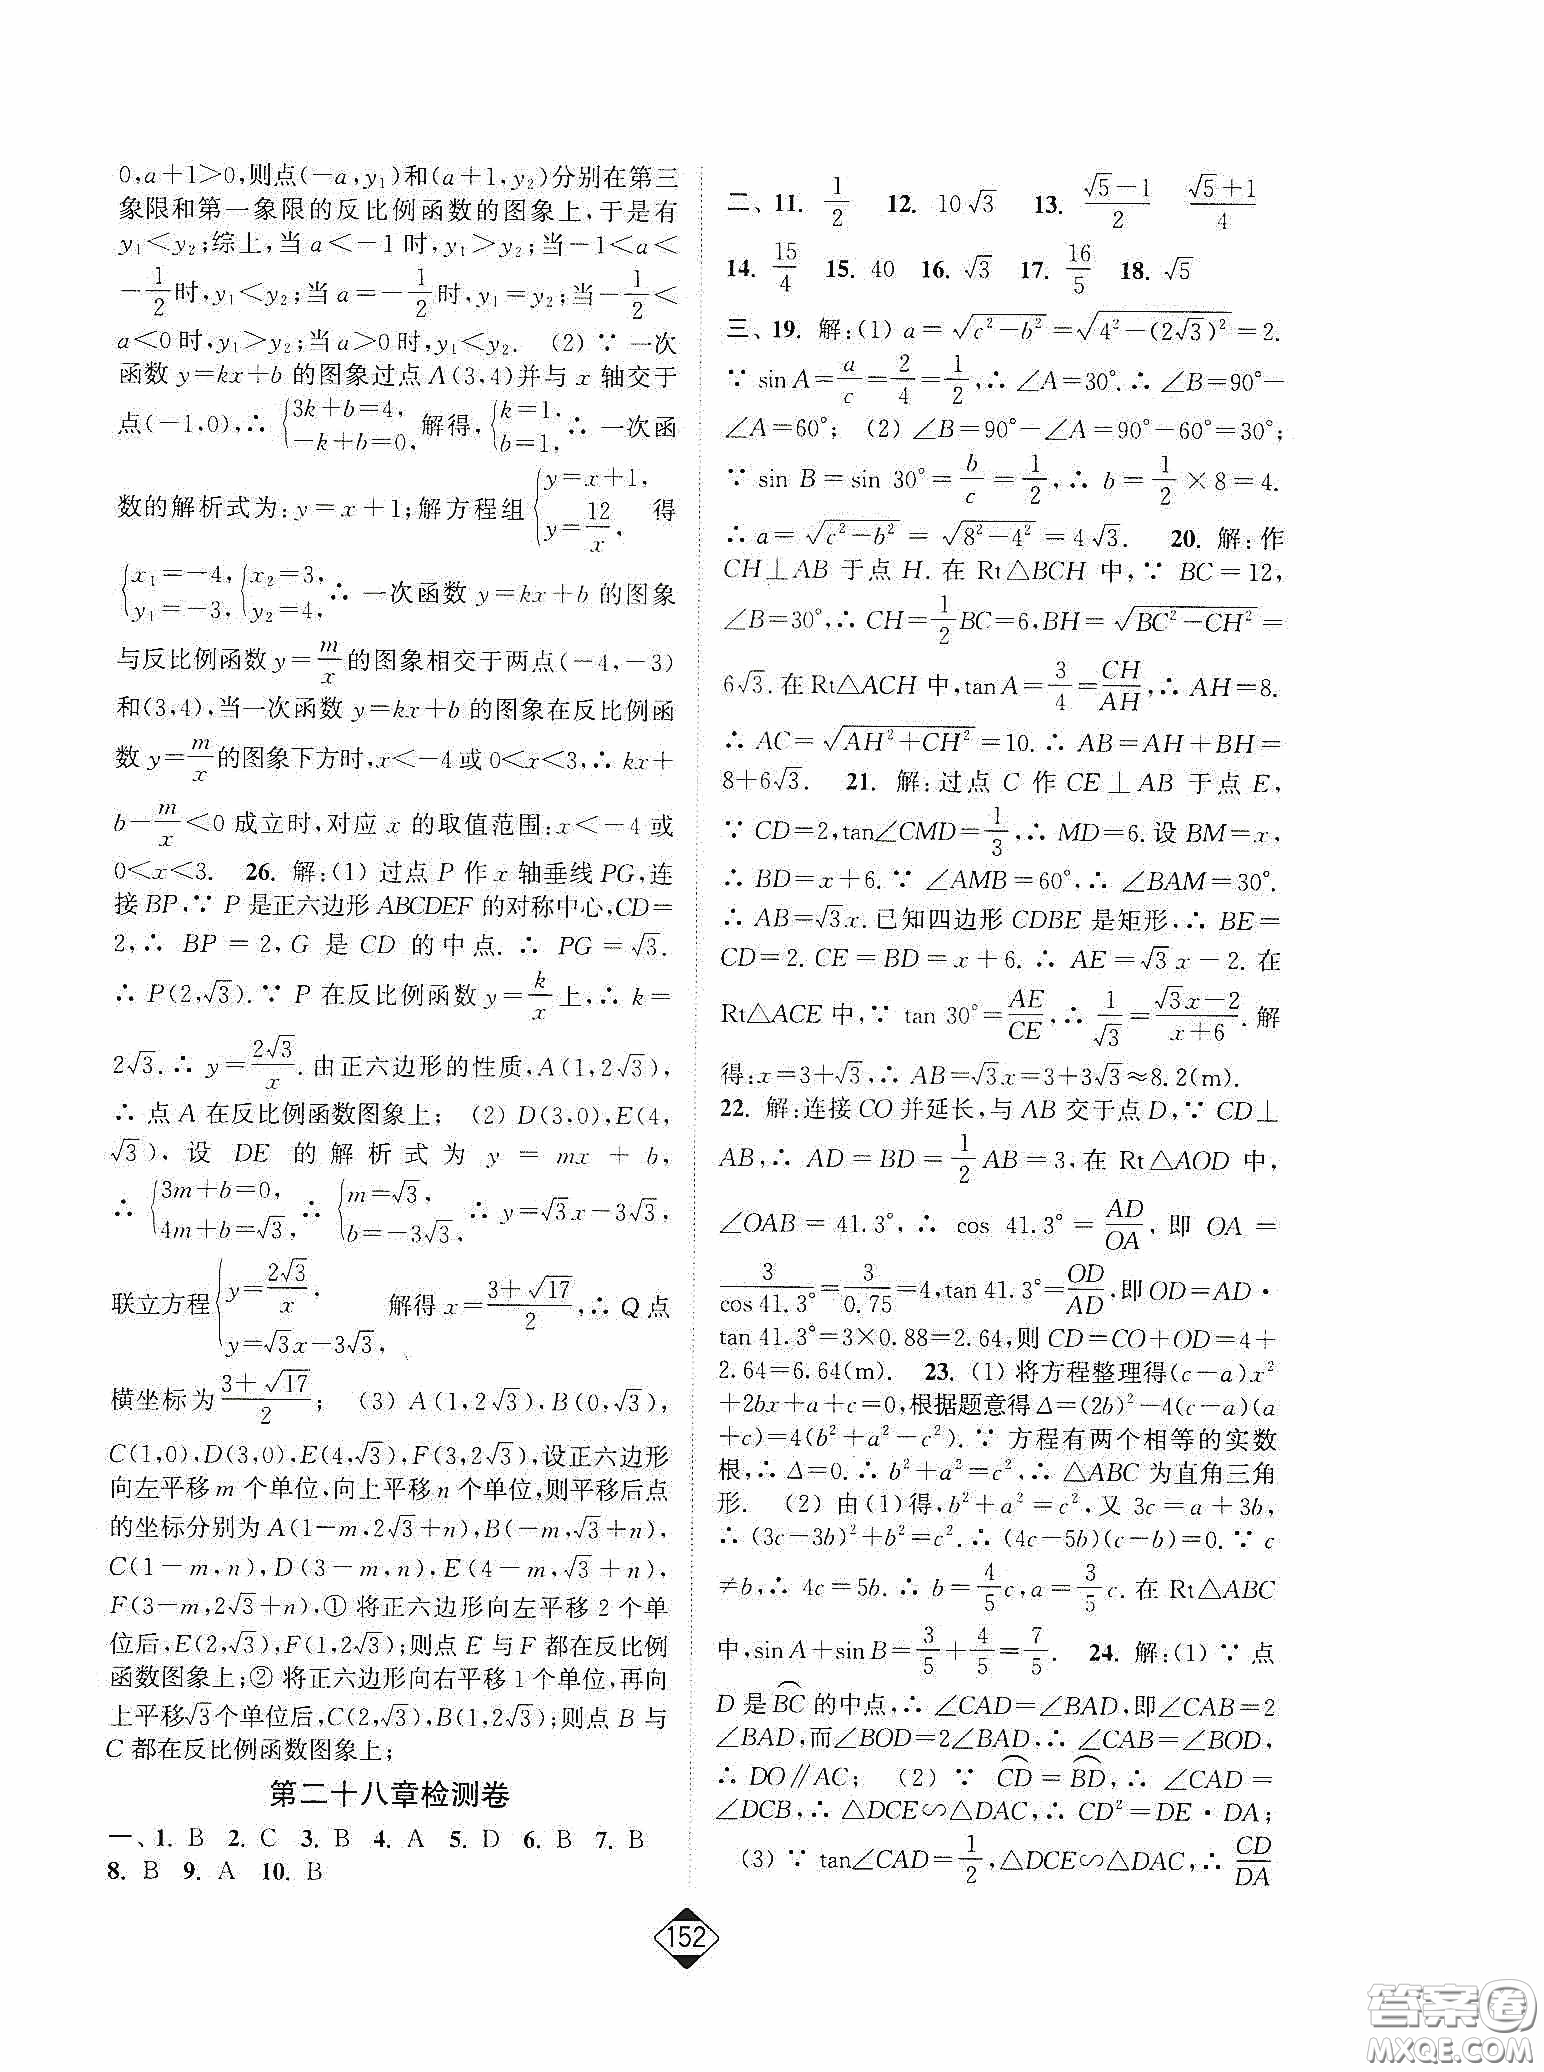 0,a+1>0,则点(-a,y₁)和(a+1,y₂)分别在第三
象限和第一象限的反比例函数的图象上,于是有
y₁<y₂;综上,当a<-1时,y₁>y₂;当-1<a<
-1/2时,y₁<y₂;当a=-1/2时,y₁=y₂;当-1/2<
a<0时,y₁>y₂;当a>0时,y₁<y₂. (2)∵一次
函数y=kx+b的图象过点A(3,4)并与x轴交于
点(-1,0),∴{3k+b=4, -k+b=0, 解得,{k=1. b=1, ∴一次函
数的解析式为:y=x+1;解方程组{y=x+1, y=12/x, 得
{x₁=-4, y₁=-3, {x₂=3, y₂=4, ∴一次函数y=kx+b的图象
与反比例函数y=m/x的图象相交于两点(-4,-3)
和(3,4),当一次函数y=kx+b的图象在反比例函
数y=m/x的图象下方时,x<-4或0<x<3,∴kx+
b-m/x<0成立时,对应x的取值范围:x<-4或
0<x<3. 26. 解:(1)过点P作x轴垂线PG,连
接BP,∵P是正六边形ABCDEF的对称中心,CD=
2,∴BP=2,G是CD的中点.∴PG=√3.
∴P(2,√3).∵P在反比例函数y=k/x上,∴k=
2√3.∴y=2√3/x.由正六边形的性质,A(1,2√3),
∴点A在反比例函数图象上; (2)D(3,0),E(4,
√3),设DE的解析式为y=mx+b,
∴{3m+b=0, 4m+b=√3, ∴{m=√3, b=-3√3, ∴y=√3x-3√3,
联立方程{y=2√3/x, y=√3x-3√3, 解得x=(3+√17)/2,∴Q点
横坐标为(3+√17)/2; (3)A(1,2√3),B(0,√3),
C(1,0),D(3,0),E(4,√3),F(3,2√3),设正六边形
向左平移m个单位,向上平移n个单位,则平移后点
的坐标分别为A(1-m,2√3+n),B(-m,√3+n),
C(1-m,n),D(3-m,n),E(4-m,√3+n),
F(3-m,2√3+n),①将正六边形向左平移2个单
位后,E(2,√3),F(1,2√3);则点E与F都在反比例
函数图象上;②将正六边形向右平移1个单位,再向
上平移√3个单位后,C(2,√3),B(1,2√3);则点B与
C都在反比例函数图象上;
第二十八章检测卷
一、1. B 2. C 3. B 4. A 5. D 6. B 7. B
8. B 9. A 10. B
二、11. 1/2 12. 10√3 13. (√5-1)/2 (√5+1)/4
14. 15/4 15. 40 16. √3 17. 16/5 18. √5
三、19. 解:(1)a=√(c²-b²)=√(4²-(2√3)²)=2.
∵sinA=a/c=2/4=1/2,∴∠A=30°.∴∠B=90°-
∠A=60°; (2)∠B=90°-∠A=90°-60°=30°;
∵sin B=sin 30°=b/c=1/2,∴b=1/2×8=4.
∴a=√(c²-b²)=√(8²-4²)=4√3. 20. 解:作
CH⊥AB于点H.在Rt△BCH中,∵BC=12,
∠B=30°,∴CH=1/2BC=6,BH=√(BC²-CH²)=
6√3.在Rt△ACH中,tanA=3/4=CH/AH,∴AH=8.
∴AC=√(AH²+CH²)=10.∴AB=AH+BH=
8+6√3. 21. 解:过点C作CE⊥AB于点E,
∵CD=2,tan∠CMD=1/3,∴MD=6.设BM=x,
∴BD=x+6.∵∠AMB=60°,∴∠BAM=30°.
∴AB=√3x.已知四边形CDBE是矩形,∴BE=
CD=2.CE=BD=x+6.∴AE=√3x-2.在
Rt△ACE中,∵tan 30°=AE/CE,∴1/√3=(√3x-2)/(x+6).解
得:x=3+√3,∴AB=√3x=3+3√3≈8.2(m).
22. 解:连接CO并延长,与AB交于点D,∵CD⊥
AB,∴AD=BD=1/2AB=3,在Rt△AOD中,
∠OAB=41.3°,∴cos 41.3°=AD/OA,即OA=
3/cos41.3°=3/0.75=4,tan41.3°=OD/AD,即OD=AD·
tan41.3°=3×0.88=2.64,则CD=CO+OD=4+
2.64=6.64(m). 23. (1)将方程整理得(c-a)x²
+2bx+a+c=0,根据题意得Δ=(2b)²-4(c-a)(a
+c)=4(b²+a²-c²).∵方程有两个相等的实数
根,∴Δ=0.∴b²+a²=c²,∴△ABC为直角三角
形. (2)由(1)得,b²+a²=c²,又3c=a+3b,
∴(3c-3b)²+b²=c².∴(4c-5b)(c-b)=0.∵c
≠b,∴4c=5b.∴b=4/5c,a=3/5c.在Rt△ABC
中,sinA+sinB=3/5+4/5=7/5. 24. 解:(1)∵点
D是⌒BC的中点,∴∠CAD=∠BAD,即∠CAB=2
∠BAD,而∠BOD=2∠BAD,∴∠CAB=∠BOD,
∴DO∥AC; (2)∵⌒CD=⌒BD,∴∠CAD=
∠DCB,∴△DCE∽△DAC,∴CD²=DE·DA;
(3)∵tan∠CAD=1/2,△DCE∽△DAC,∴CD/DA
152
答案卷
MXQE.COM